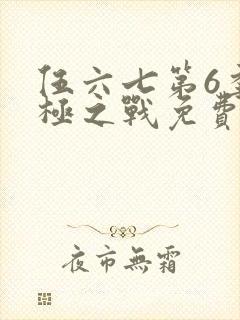 伍六七第6季
極之戰免費
夜市無霜